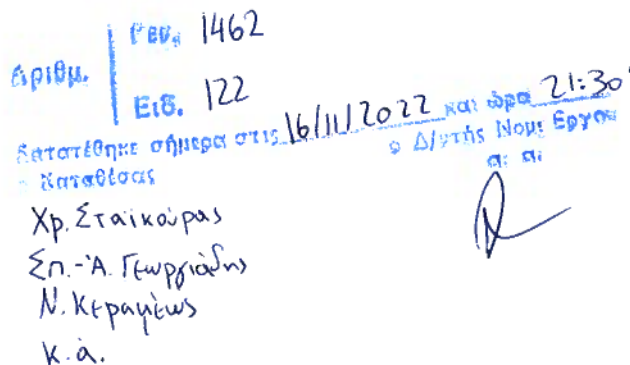 Αριθμ. Γεν. 1462
Ειδ. 122
Κατατέθηκε σήμερα στις 16/11/2022 και ώρα 21:30'
ο Καταθέσας ο Δ/ντής Νομ. Εργου
α. α.
Χρ. Σταϊκούρας
Σπ.-Ά. Γεωργιάδης
Ν. Κεραμέως
κ.ά.